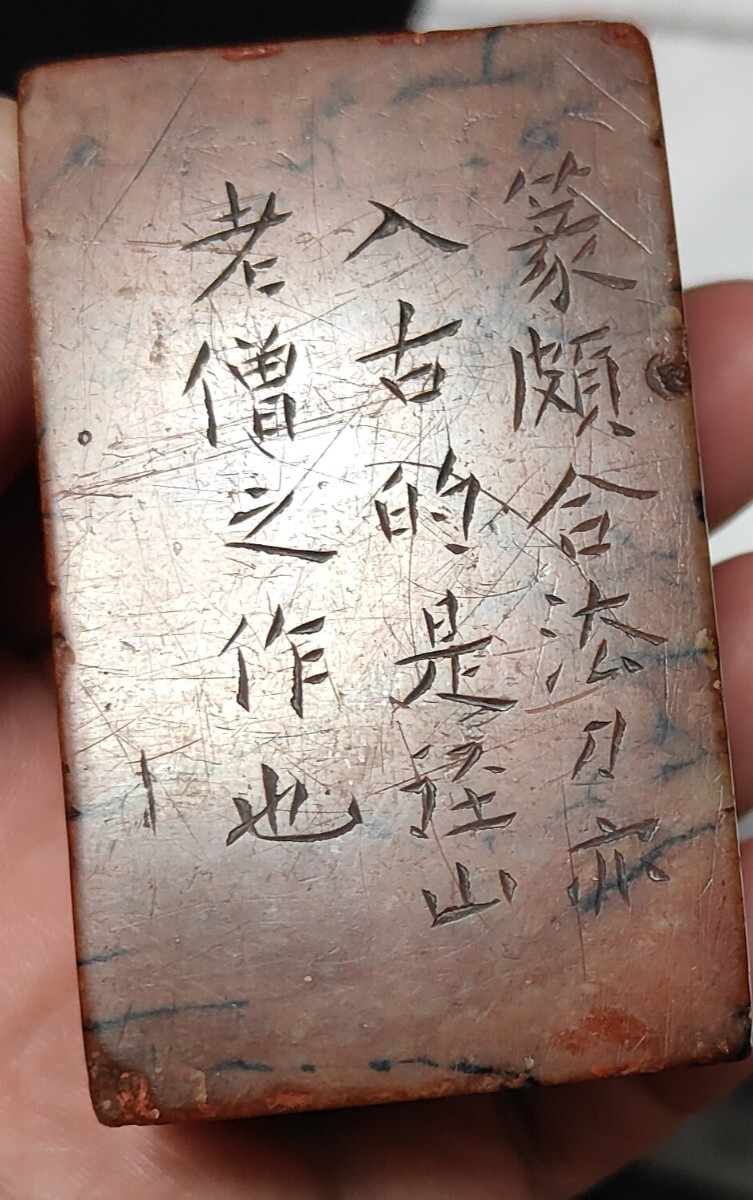 篆頗合法刀亦
入古的是径山
老僧之作也